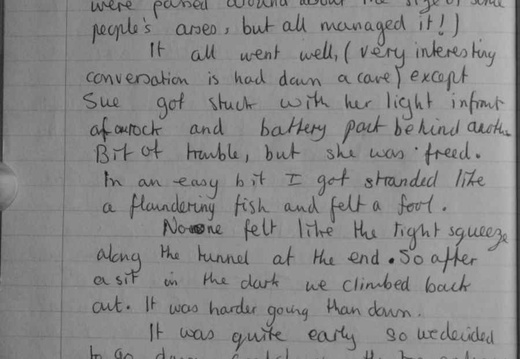 were passed around about the size of some
people's arses, but all managed it!)
It all went well, (very interesting
conversation is had down a cave) except
Sue got stuck with her light infront
of a rock and battery pack behind another
Bit of trouble, but she was freed.
In an easy bit I got stranded like
a floundering fish and felt a fool.
Noone felt like the tight squeeze
along the tunnel at the end. So after
a sit in the dark we climbed back
out. It was harder going than down.
It was quite early so we decided
to go down